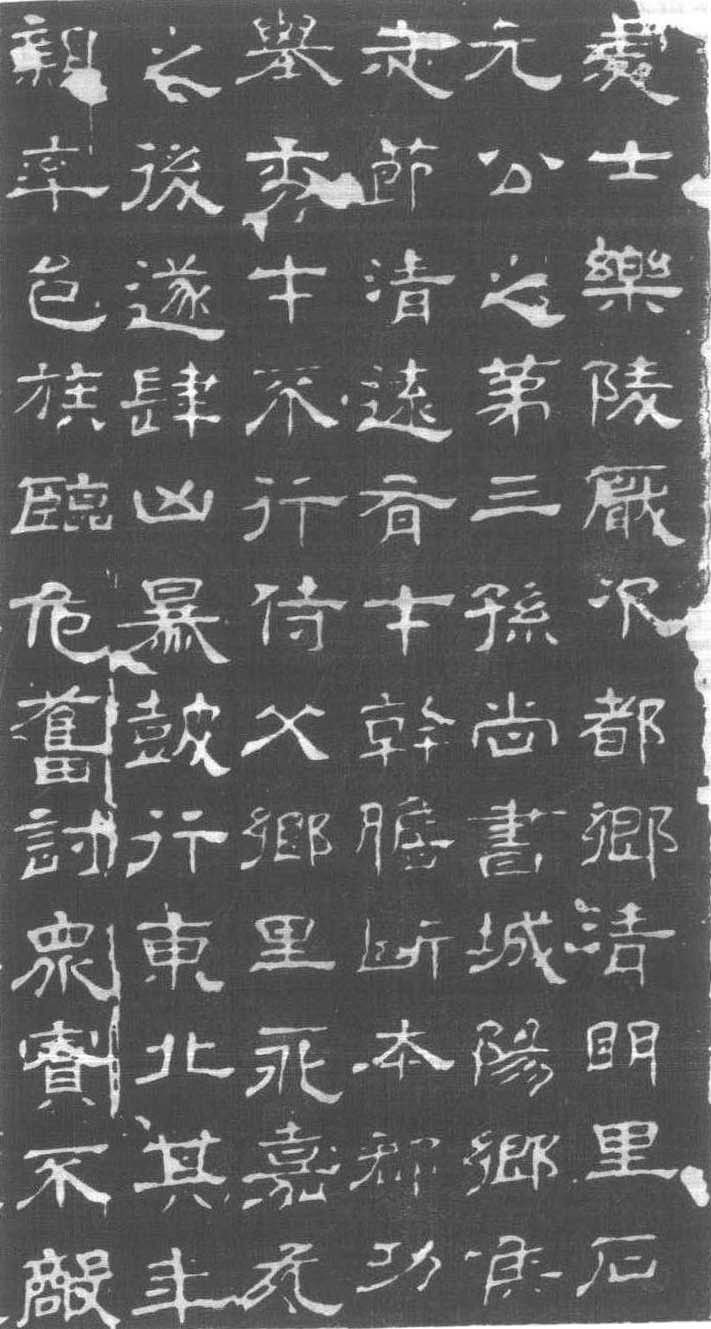 處士樂陵厭次都鄉清明里石
元公之第三孫尚書城陽鄉侯
志節清遠有才幹膽斷本郡功
舉秀才不行侍父鄉里永嘉元
之後遂肆凶暴鼓行東北其年
親率邑族臨危奮討衆寡不敵